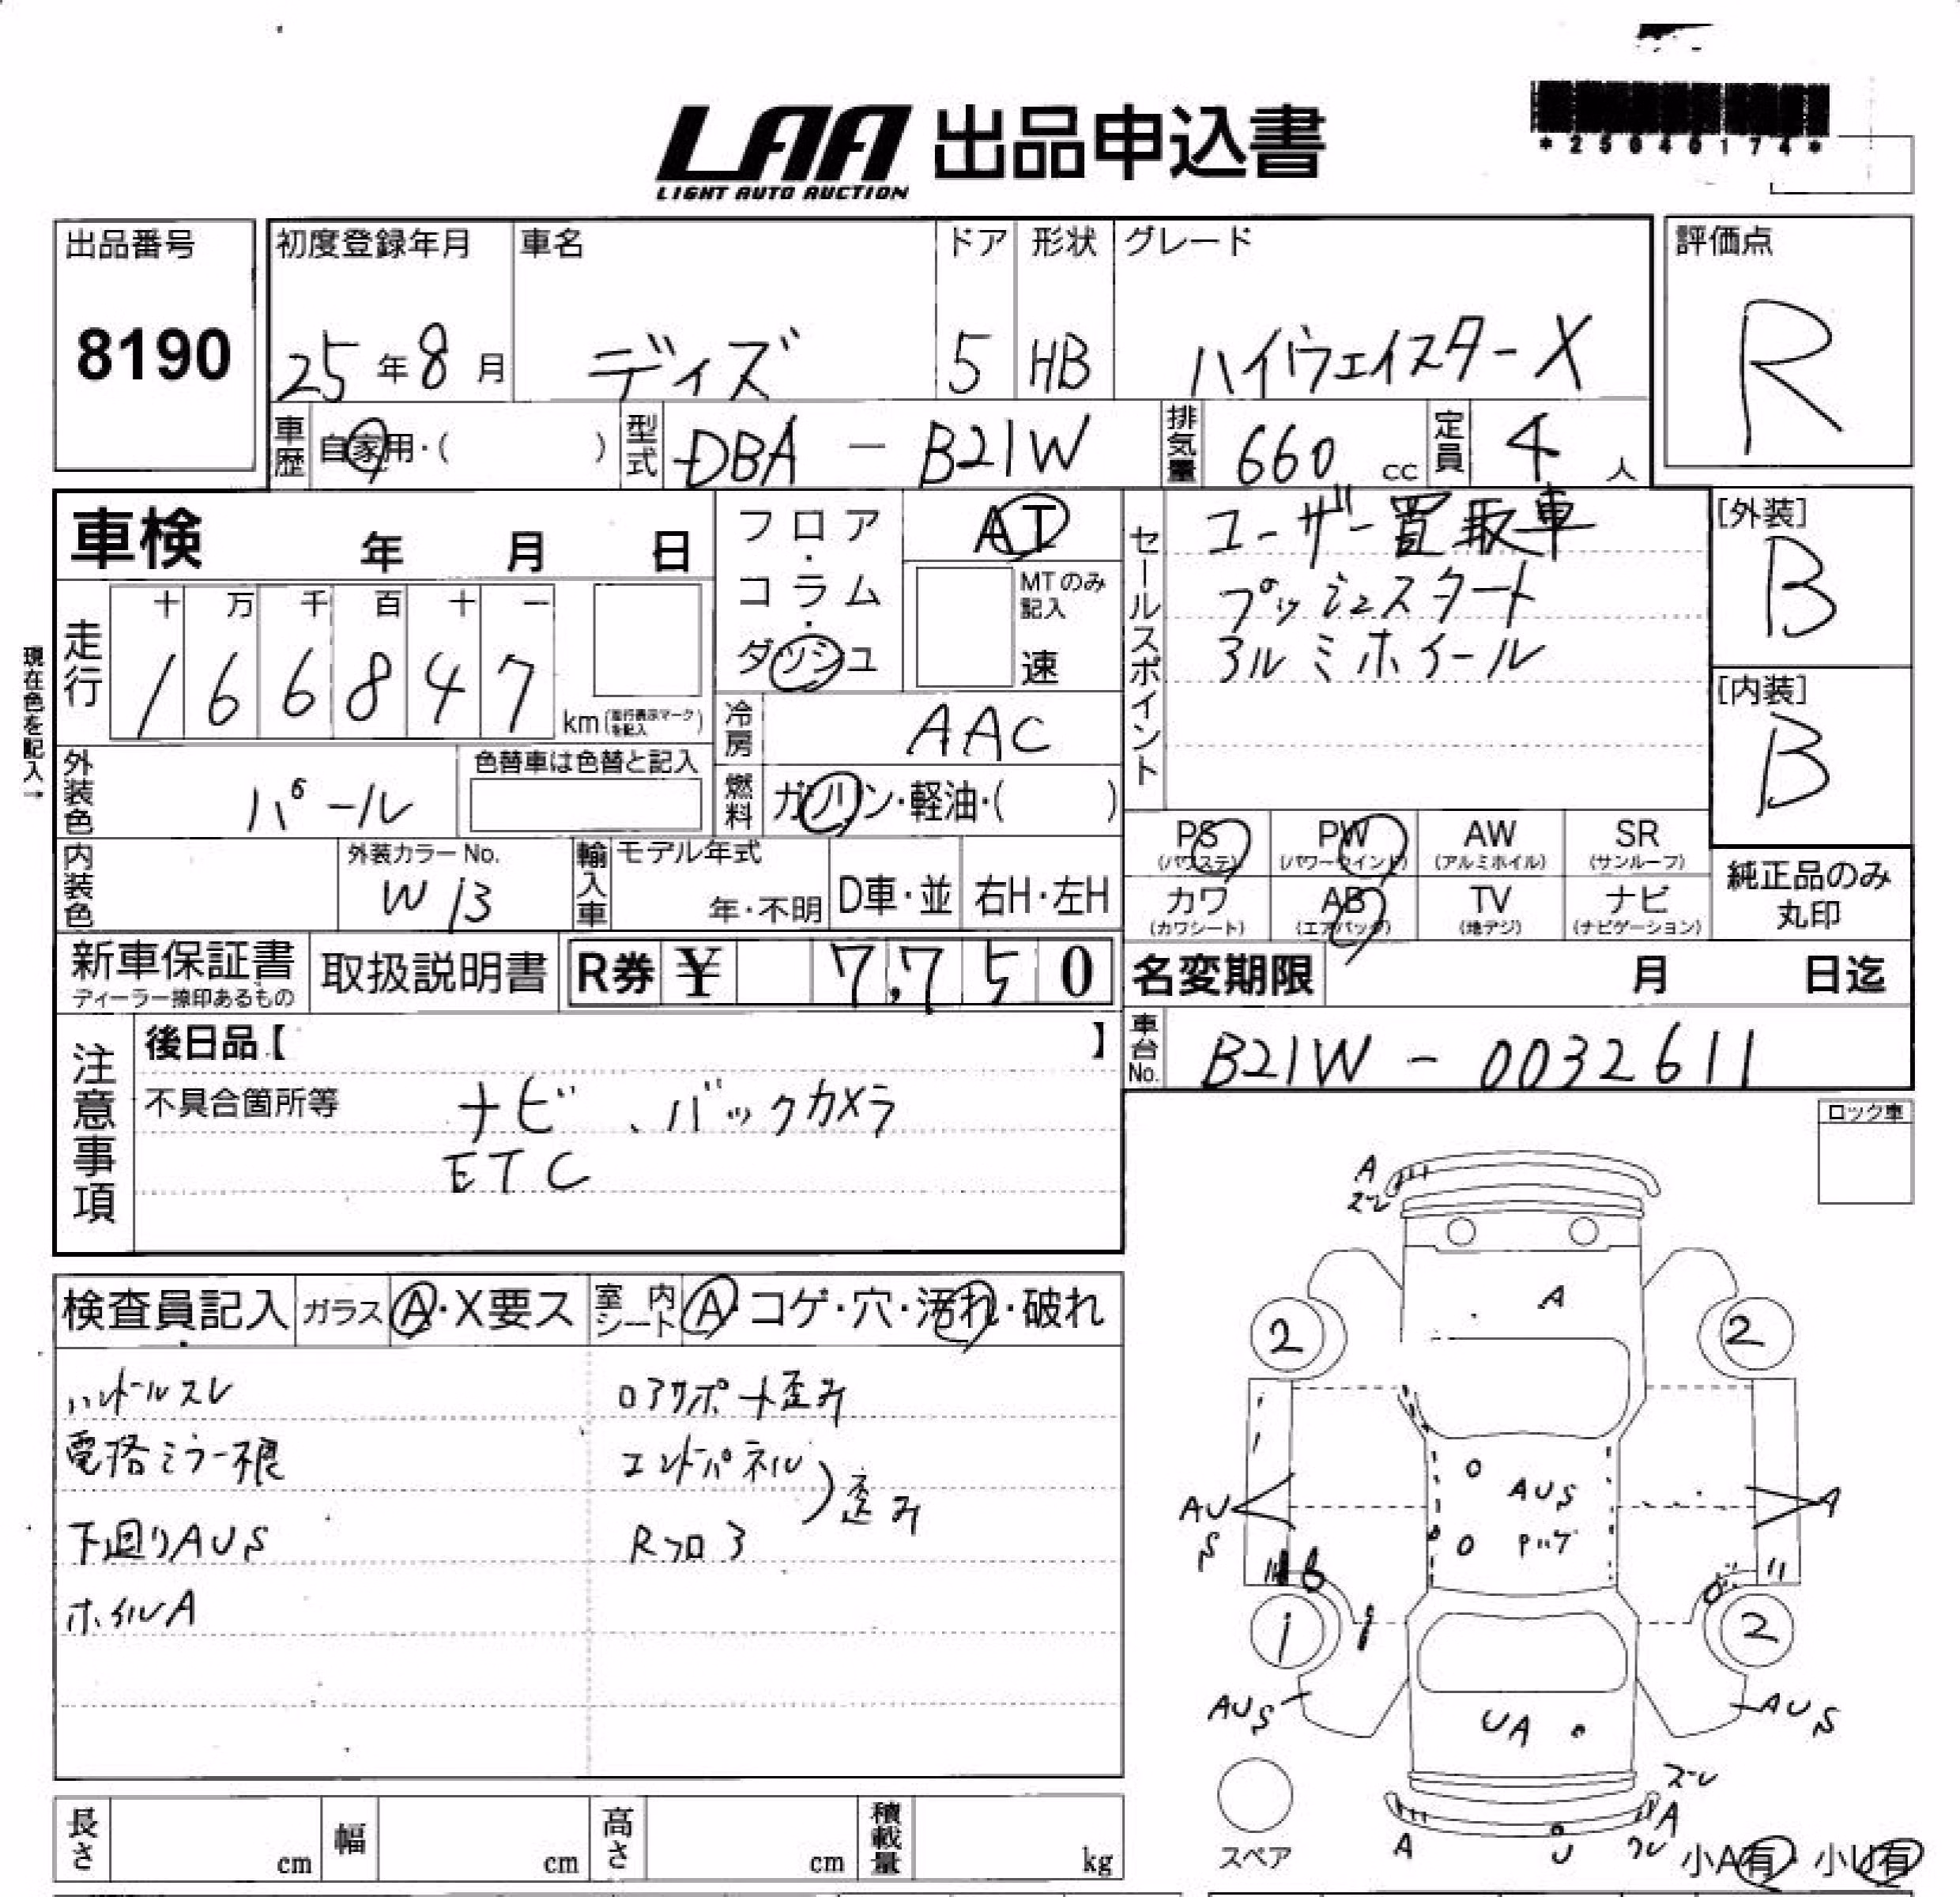 LAA 出品申込書
LIGHT AUTO AUCTION
*25040174*
出品番号
8190
初度登録年月
25年8月
車名
ディズ
ドア
5
形状
HB
グレード
ハイウェイスターX
評価点
R
車歴
自家用・( )
型式
DBA - B21W
排気量
660 cc
定員
4人
車検 年 月 日
フロア・コラム・ダッシュ
AT
MTのみ記入
速
セールスポイント
ユーザー買取車
プッシュスタート
アルミホイール
[外装]
B
[内装]
B
現在色を記入→
走行
十 万 千 百 十 一
1 6 6 8 4 7
km(走行表示マークを記入)
冷房
AAC
外装色
パール
色替車は色替と記入
燃料
ガソリン・軽油・( )
内装色
外装カラーNo.
W13
輸入車
モデル年式
年・不明
D車・並
右H・左H
PS
(パワステ)
PW
(パワーウインド)
AW
(アルミホイル)
SR
(サンルーフ)
カワ
(カワシート)
AB
(エアバック)
TV
(地デジ)
ナビ
(ナビゲーション)
純正品のみ
丸印
新車保証書
ディーラー捺印あるもの
取扱説明書
R券 ¥ 7,750
名変期限 月 日迄
注意事項
後日品【 】
不具合箇所等
ナビ、バックカメラ
ETC
車台No.
B21W - 0032611
ロック車
検査員記入
ガラス A・X要ス
室内シート A・コゲ・穴・汚れ・破れ
ハンドルスレ
電格ミラー不良
下廻りAUS
ホイルA
ロアサポート歪み
エンドパネル
Rフロア
歪み
A
ズレ
A
2
2
AUS
AUS
A
B
1
2
AUS
AUS
UA
ズレ
A
A
U
ワレ
スペア
小A有・小U有
長さ cm
幅 cm
高さ cm
積載量 kg